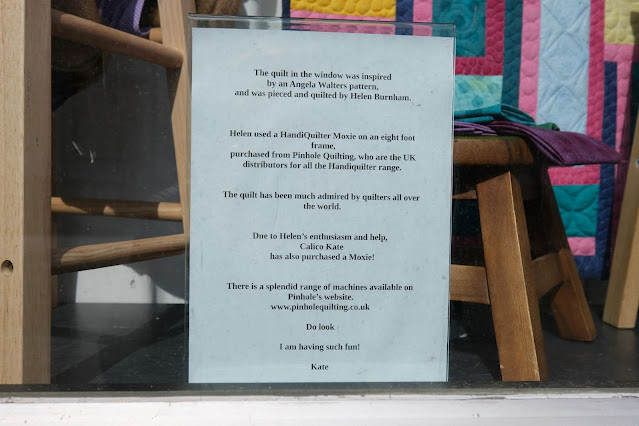 The quilt in the window was inspired
by an Angela Walters pattern,
and was pieced and quilted by Helen Burnham.
Helen used a HandiQuilter Moxie on an eight foot
frame,
purchased from Pinhole Quilting, who are the UK
distributors for all the Handiquilter range.
The quilt has been much admired by quilters all over
the world.
Due to Helen's enthusiasm and help,
Calico Kate
has also purchased a Moxie!
There is a splendid range of machines available on
Pinhole's website.
www.pinholequilting.co.uk
Do look
I am having such fun!
Kate